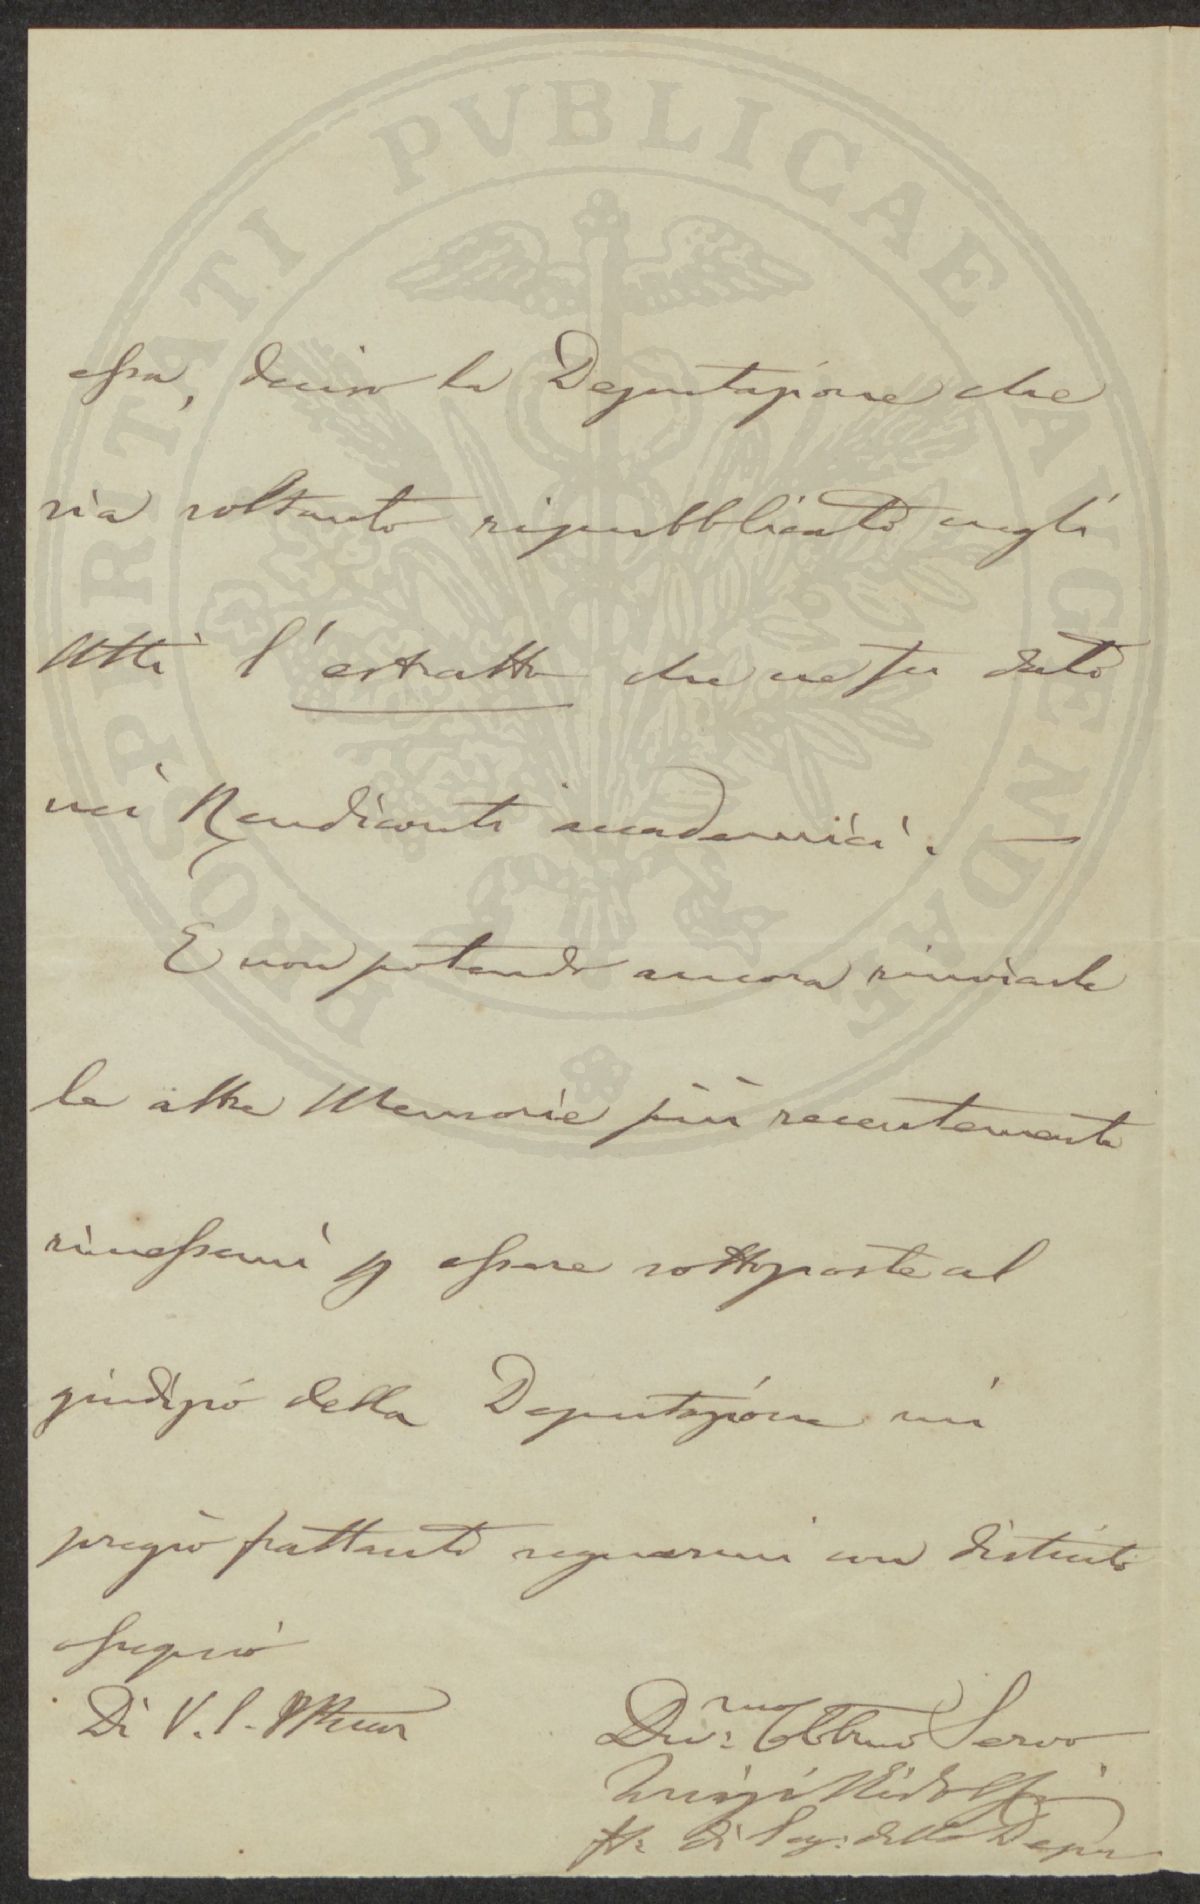 PROSPERITATI PVBLICAE AVGENDAE
essa, deciso la Deputazione che
sia soltanto ripubblicato negli
Atti l'estratto che ne fu dato
nei Rendiconti accademici. —
E non potendo ancora rinviarle
le altre Memorie più recentemente
rimessemi p essere sottoposte al
giudizio della Deputazione mi
pregio frattanto segnarmi con distinto
ossequio
Di V. S. Illma
Div:mo Obbmo Servo
Luigi Ridolfi
ff: di Seg: della Depu